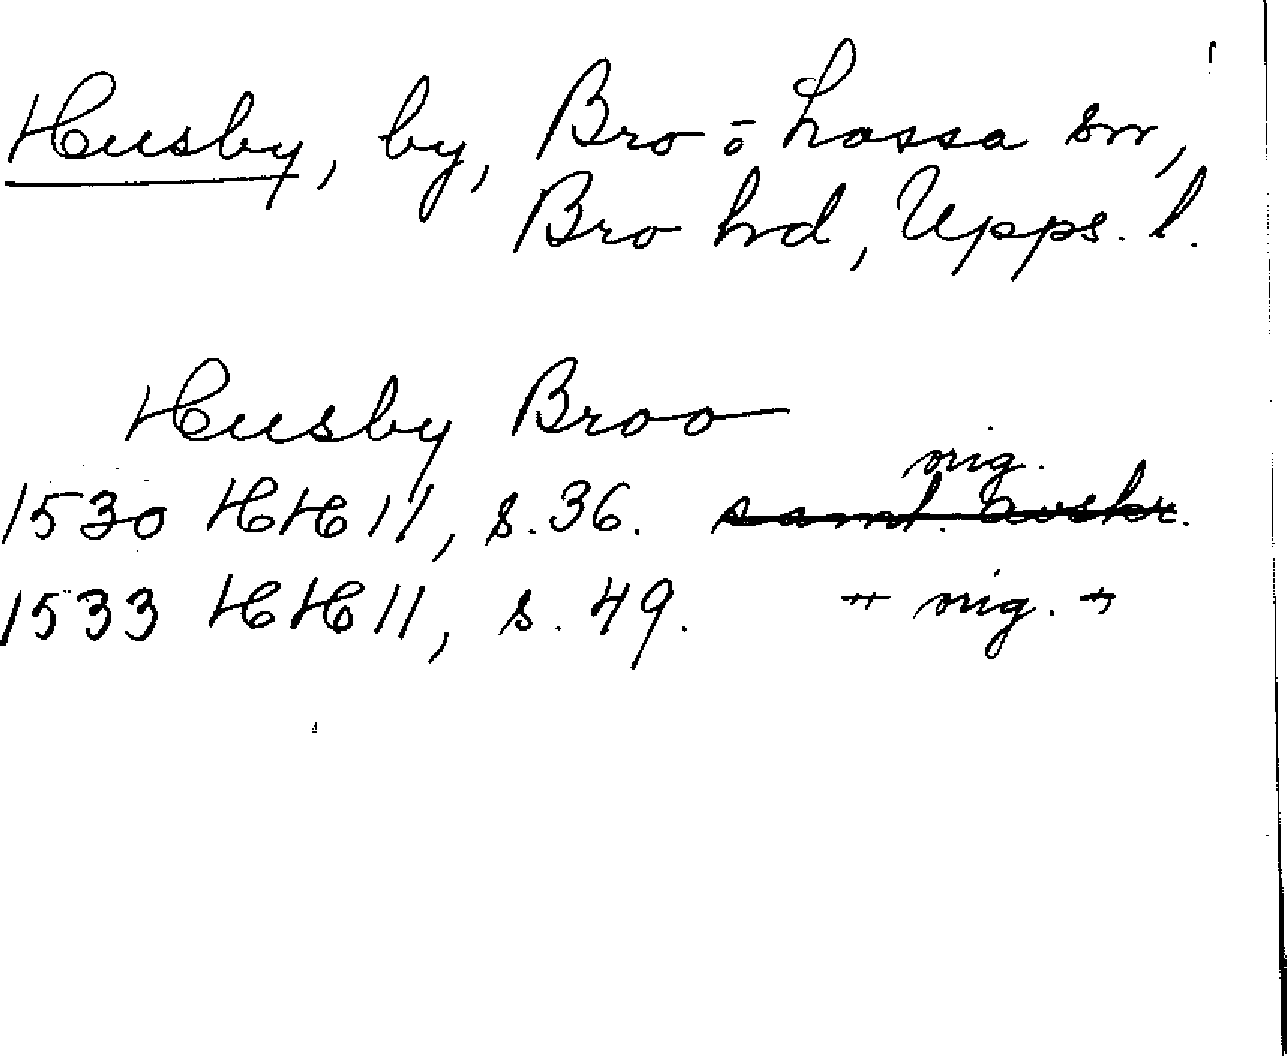 Husby, by, Bro o Lossa snr,
Bro hrd, Upps. l.
Husby Broo
orig.
1530 HH 11, s. 36. saml. avskr.
1533 HH 11, s. 49. orig.